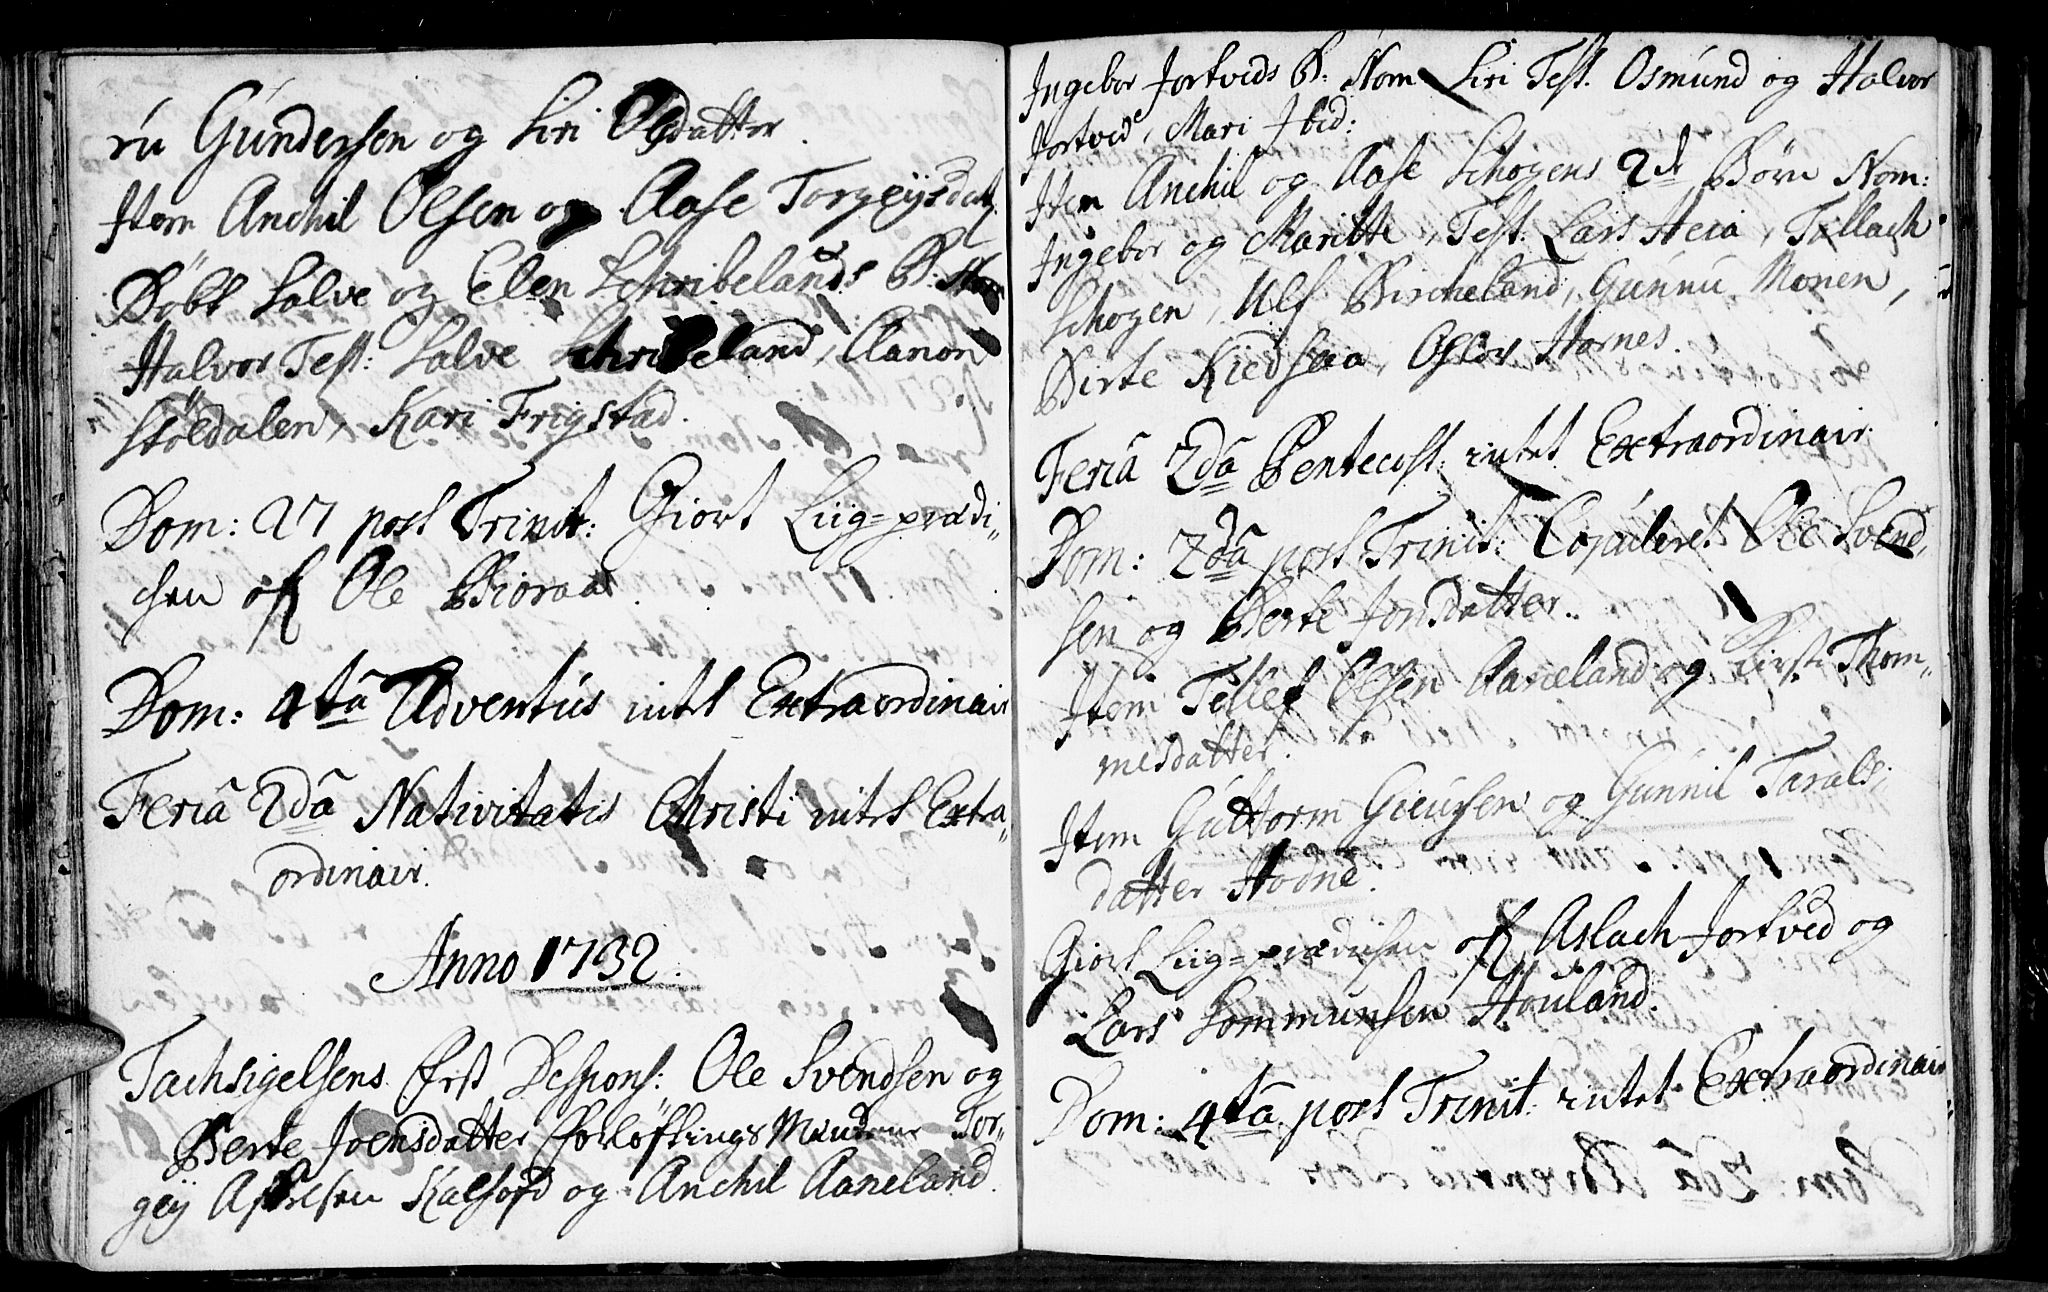 ru Gundersen og Siri Olsdatter.
Item Anchil Olsen og Aase Torgeysdat.
Döbt Salve og Elen Schribelands B: Nom
Halvor Test: Salve Schribeland, Aanon
Stöldalen, Kari Frigstad.
Dom: 27 post Trinit: Giort Liig=prædi-
chen af Ole Bioraa.
Dom: 4tâ Adventus intet Extraordinair
Feriâ 2dâ Nativitatis Christi intet Extra-
ordinair.
Anno 1732.
Tachsigelsens Fest Despons: Ole Svendsen og
Berte Joensdatter Forlöftings Mændene Tor-
gey Kalsofd og Anchil Aaneland.
Ingebor Jortveds B: Nom Siri Test. Osmund og Halvor
Jortved, Mari Ibid:
Item Anchil og Aase Schogens 2de Börn Nom:
Ingebor og Maritte, Test: Lars Heia, Tallach
Schogen, Ulf Bircheland, Gunnu Monen,
Birte Kiedsaa, Aslov Hornes.
Feriâ 2dâ Pentecost: intet Extraordinair.
Dom: 2dâ post Trinit: Copuleret Ole Svend-
sen og Berte Jonsdatter.
Item Tellef Olsen Aaneland og Kirsti Thom-
mesdatter.
Item Guttorm Gieursen og Gunnil Tarals-
datter Hodne.
Giort Liig=prædichen af Aslach Jortved og
Lars Sommunsen Houland.
Dom: 4tâ post Trinit: intet Extraordinair